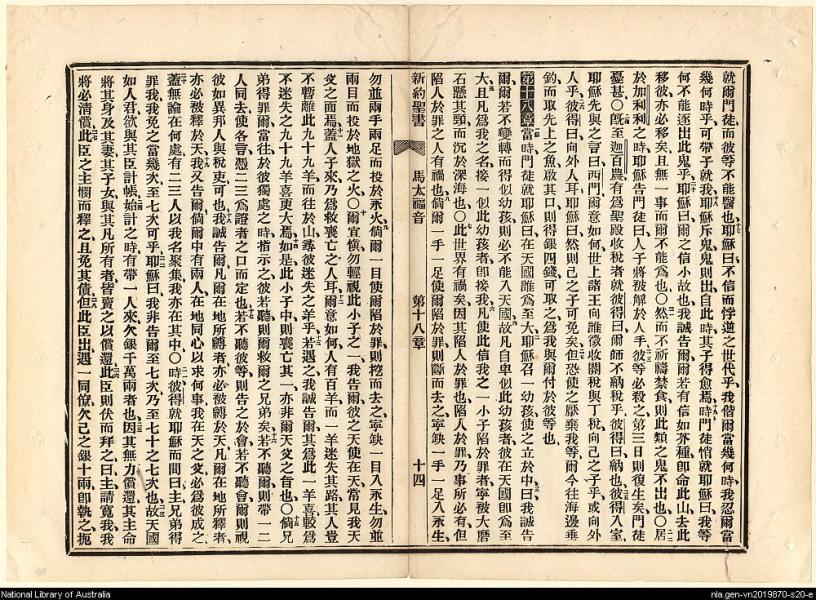 就爾門徒而彼等不能醫也耶穌曰不信而悖逆之世代乎我偕爾當幾何時我忍爾當
幾何時乎可帶子就我耶穌斥鬼鬼則出自此時其子得愈焉時門徒惟就耶穌曰我等
何不能逐出此鬼乎耶穌曰爾之信小故也我誠告爾爾若有信如芥種卽命此山去此
移彼亦必移矣且無一事而爾不能爲也○然而不祈禱禁食則此類之鬼不出也○居
於加利利之時耶穌告門徒曰人子將被解於人手彼等必殺之第三日則復生矣門徒
憂甚○旣至迦百農有爲聖殿收稅者就彼得曰爾師不納稅乎彼得曰納也彼得入室
耶穌先與之言曰西門爾意如何世上諸王向誰徵收關稅與丁稅向己之子乎或向外
人乎彼得曰向外人耳耶穌曰然則己之子可免矣但恐使之厭棄我等爾今往海邊垂
釣而取先上之魚啟其口則得銀四錢可取之爲我與爾付於彼等也
第十八章當時門徒就耶穌曰在天國誰爲至大耶穌召一幼孩使之立於中曰我誠告
爾爾若不變轉而得似幼孩則必不能入天國故凡自卑似此幼孩者彼在天國卽爲至
大且凡爲我之名接一似此幼孩者卽接我凡使此信我之一小子陷於罪者寧被大磨
石懸其頸而沉於深海也○此世界有禍矣因其陷人於罪也陷人於罪乃事所必有但
陷人於罪之人有禍也倘爾一手一足使爾陷於罪則斷而去之寧缺一手一足入永生
新約聖書
馬太福音
第十八章
十四
勿並兩手兩足而投於永火倘爾一目使爾陷於罪則挖而去之寧缺一目入永生勿並
兩目而投於地獄之火○爾宜愼勿輕視此小子之一我告爾彼之天使在天常見我天
父之面焉蓋人子來乃爲救喪亡之人耳爾意如何人有百羊而一羊迷失其路其人豈
不暫離此九十九羊而往於山尋彼迷失之羊乎若遇之我誠告爾其爲此一羊喜較爲
不迷失之九十九羊喜更大焉如是此小子中則喪亡其一亦非爾天父之旨也○倘兄
弟得罪爾當往於彼獨處之時指示之彼若聽則爾救爾之兄弟矣若不聽爾則帶一二
人同去使各言憑二三爲證者之口而定也若不聽彼等則告之於會若不聽會爾則視
彼如異邦人與稅吏可也我誠告爾凡爾在地所縛者亦必被縛於天凡爾在地所釋者
亦必被釋於天我又告爾倘爾中有兩人在地同心以求何事我在天之父必爲彼成之
蓋無論在何處有二三人以我名聚集我亦在其中○時彼得就耶穌而問曰主兄弟得
罪我我免之當幾次至七次可乎耶穌曰我非告爾至七次乃至七十之七次也故天國
如人君欲與其臣計帳始計之時有帶一人來欠銀千萬兩者也因其無力償還其主命
將其身及其妻其子女與其凡所有者皆賣之以償還此臣則伏而拜之曰主請寬我我
將必淸償此臣之主憫而釋之且免其債但此臣出遇一同僚欠己之銀十兩卽執之扼
National Library of Australia
nla.gen-vn2019870-s20-e